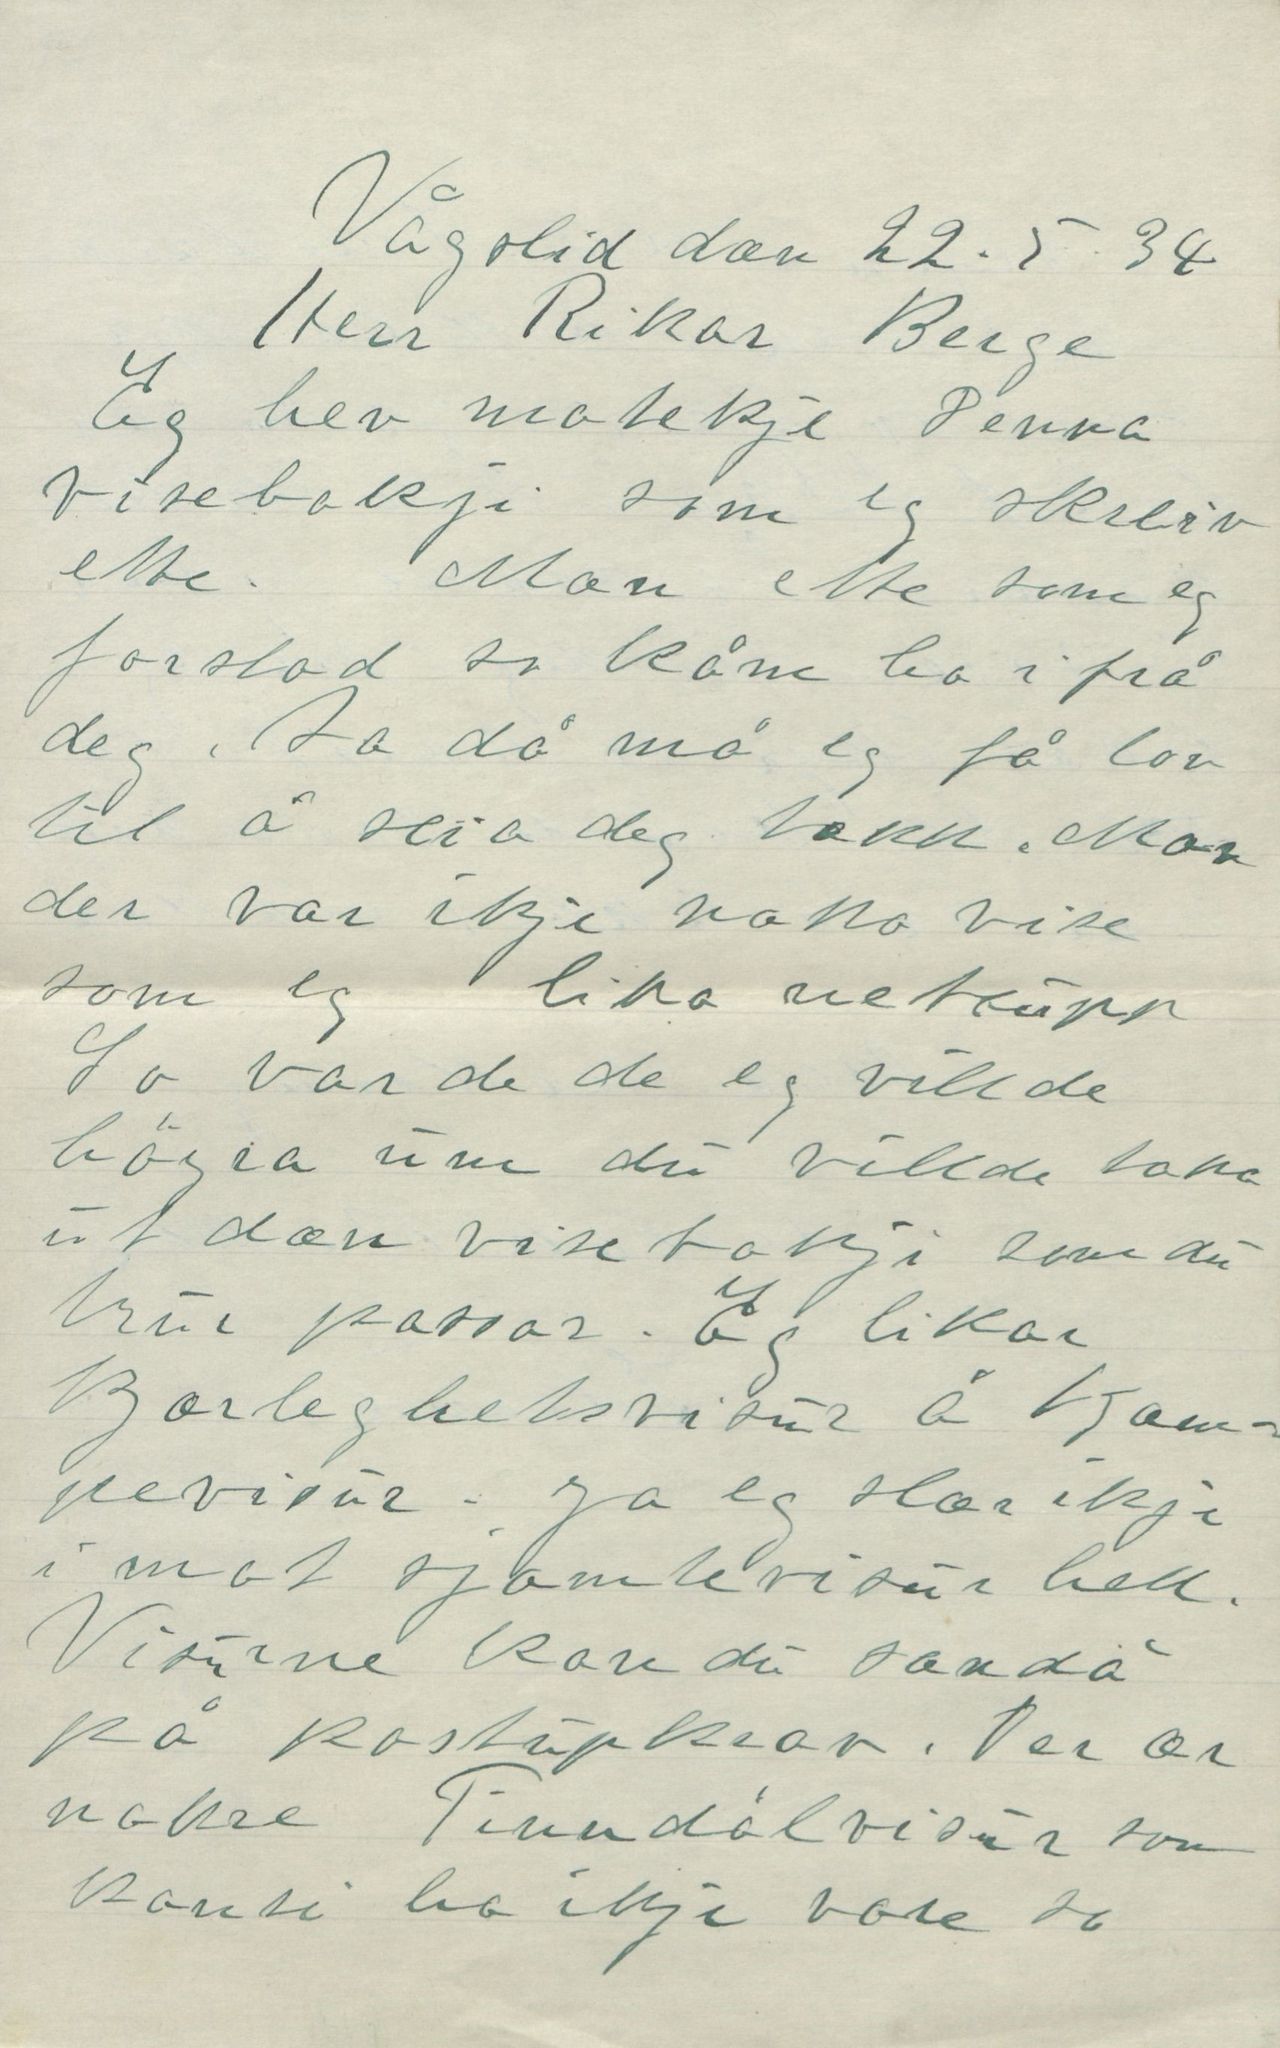 Vågslid dæn 22.5.34
Herr Rikar Berge
Eg hev motekje Denna
visebokji som eg skreiv
ette. Mæn ette som eg
forstod so kåm ho i frå
deg. So då må eg få lov
til å seia deg takk. Mæn
der var ikje noko vise
som eg lika netÿpp
So var de de eg villde
högra üm dü villde taka
üt dæn visebokji som dü
trür passar. Eg likar
Kjærleghetsvisür å Kjæm-
pevisür. Ja eg slær ikje
i mot sjæmtevisür hell.
Visürne kan dü sændå
på postüpkrav. Der ær
nokre Tinndålvisür som
kansi ha ikje vore so